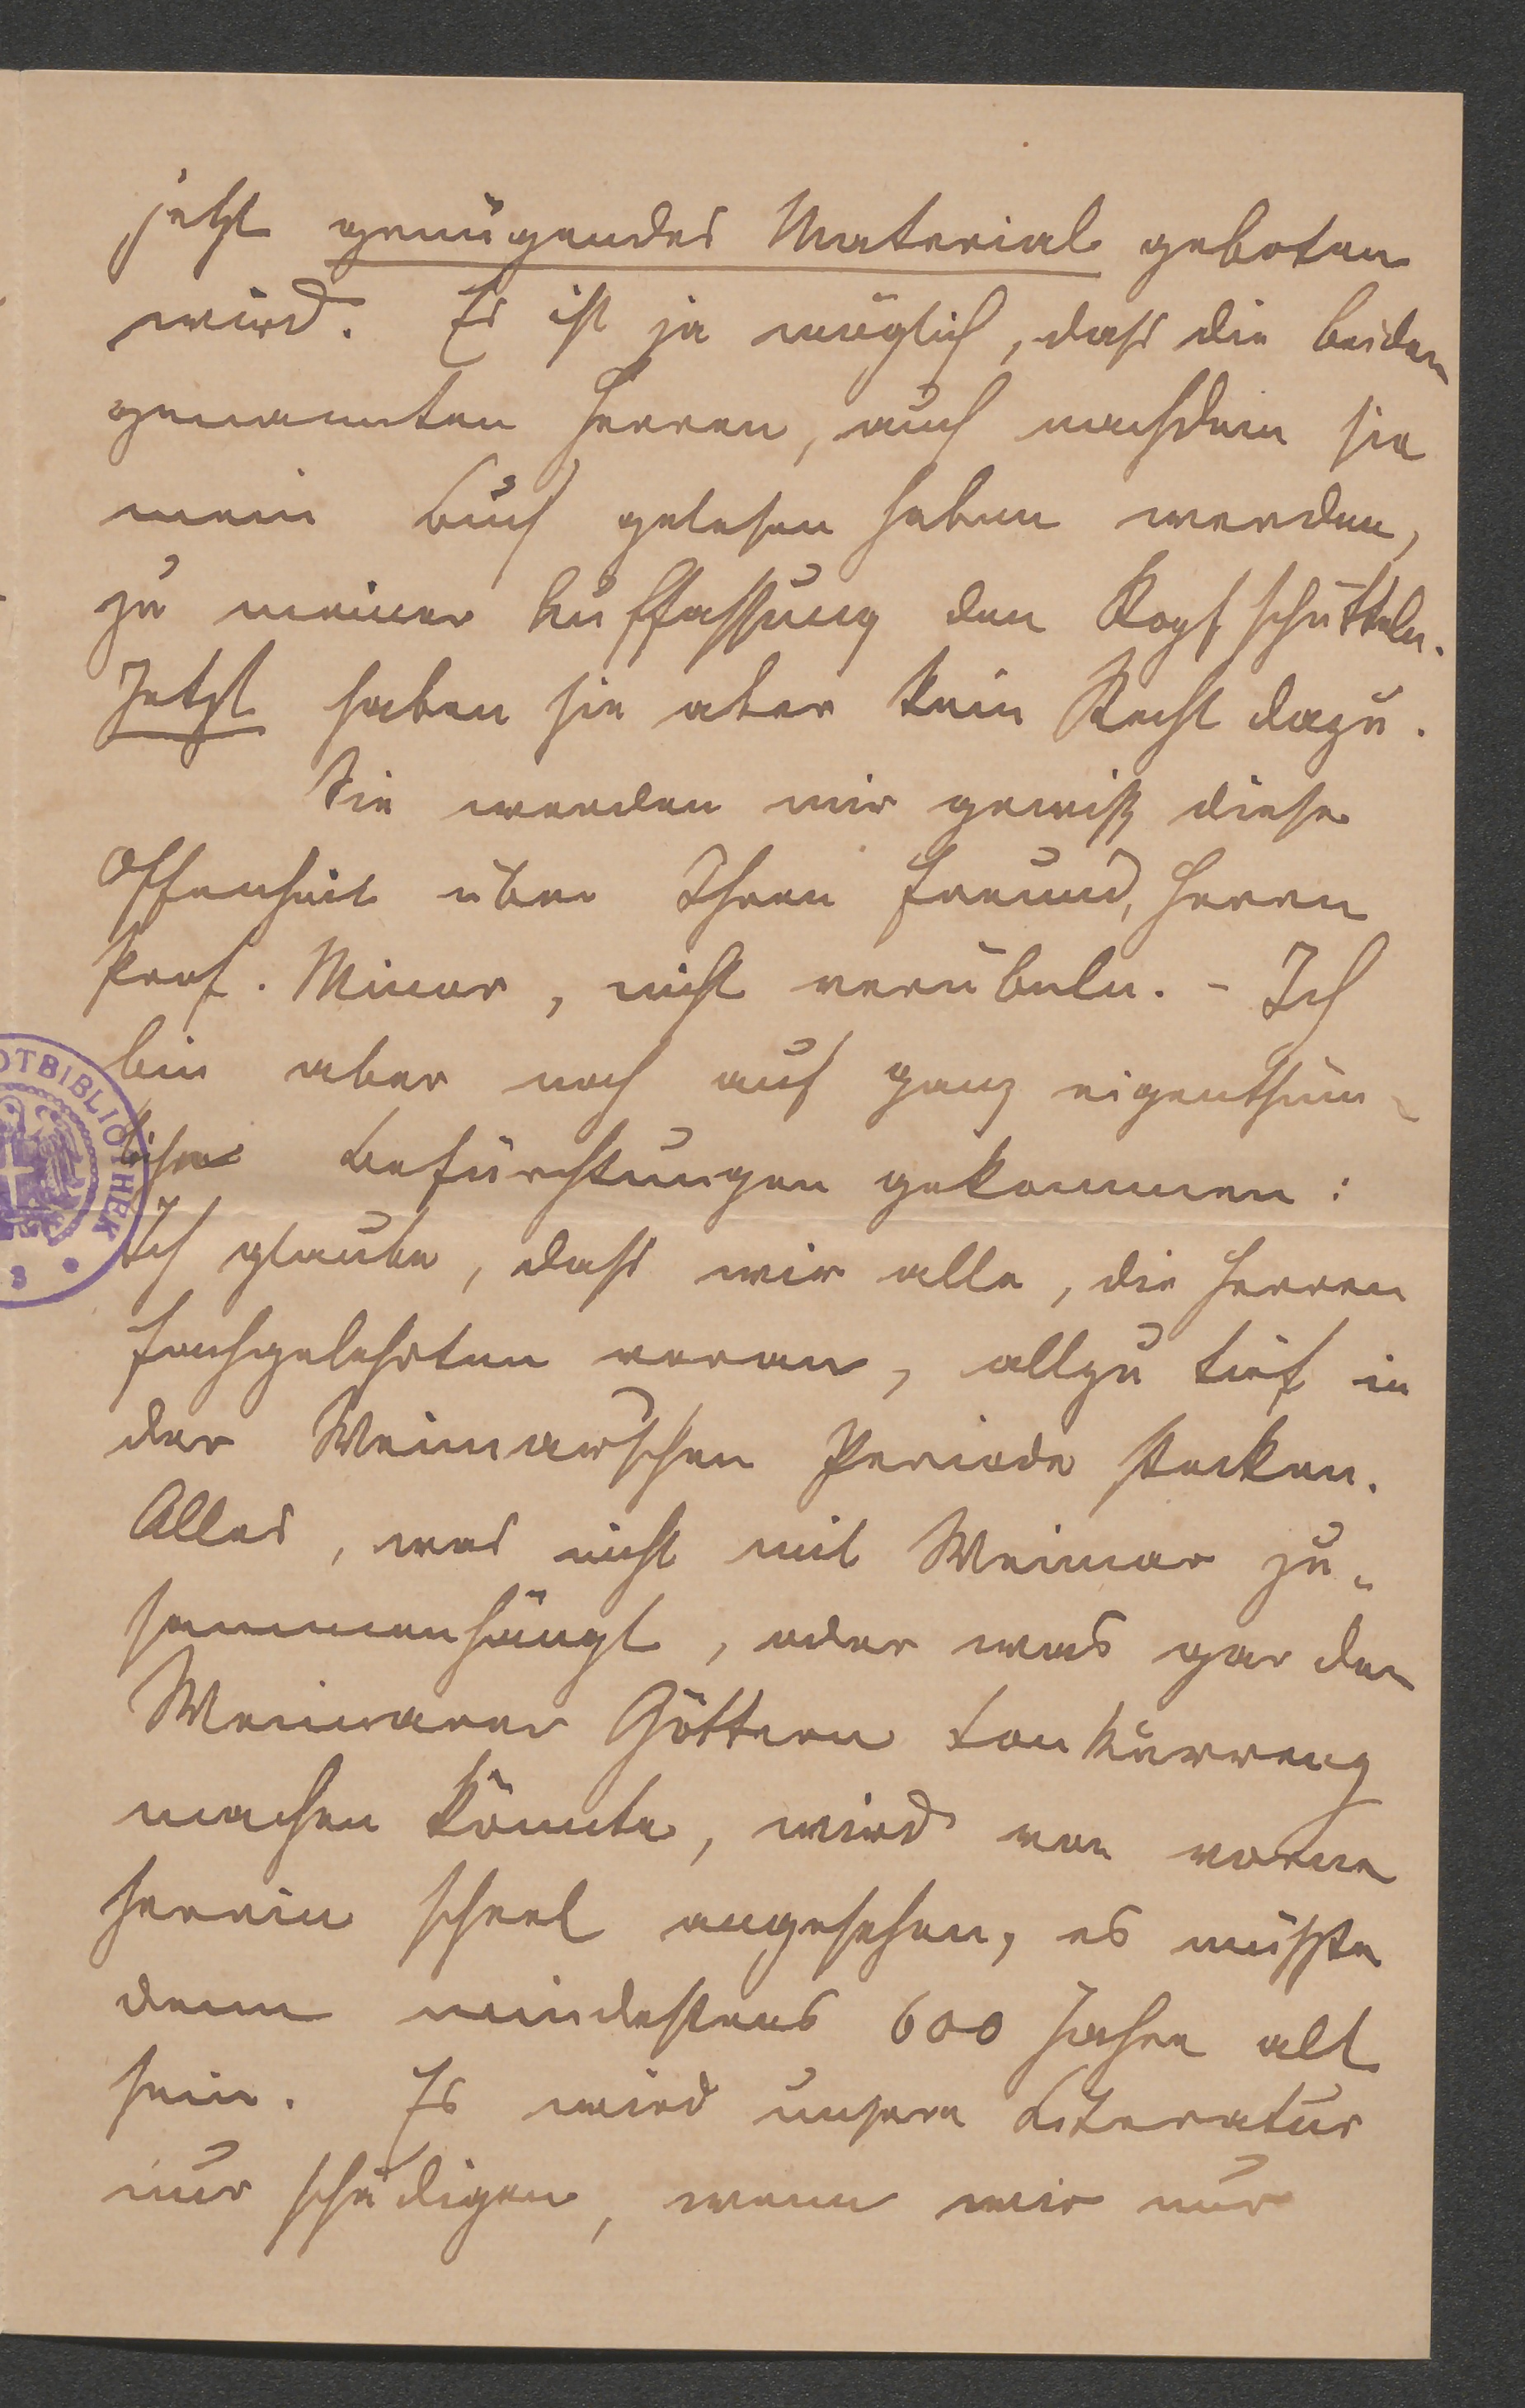 jetzt genügendes Material geboten
wird. Es ist ja möglich, daß die beiden
genannten Herren, auch nachdem sie
mein Buch gelesen haben werden,
zu meiner Auffassung den Kopf schütteln.
Jetzt haben sie aber kein Recht dazu.
Sie werden mir gewiß diese
Offenheit über Ihren Freund, Herrn
Prof. Minor, nicht verübeln. - Ich
bin aber noch auf ganz eigenthüm-
lichen Befürchtungen gekommen:
Ich glaube, daß wir alle, die Herren
Fachgelehrten voran, allzu tief in
der Weimar'schen Periode stecken.
Alles, was nicht mit Weimar zu-
sammenhängt, oder was gar den
Weimarer Göttern Konkurrenz
machen könnte, wird von vorne
herein scheel angesehen, es müßte
denn mindestens 600 Jahre alt
sein. Es wird unsere Literatur
nur schädigen, wenn wir nur
DTBIBLIOTHEK